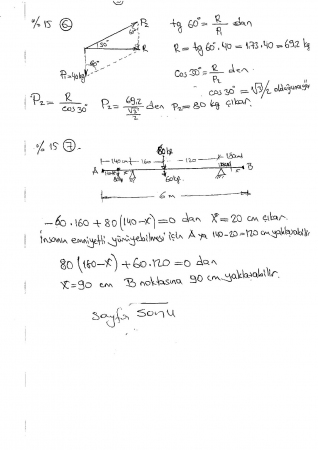 % 15 ⑥
P₂
60°
30°
R
60°
P₁=40kg
tg 60° = R/P₁ dan
R = tg 60°. 40 = 1.73. 40 = 69.2 kg
Cos 30° = R/P₂ den
cos 30° = √3/2 olduğuna göre
P₂ = R/cos 30° P₂ = 69.2/(√3/2) den P₂ = 80 kg çıkar.
% 15 ⑦-
80kp
140 cm 160 120
A B
60kp
6 m
-60.160 + 80(140-x) = 0 dan x = 20 cm çıkar.
İnsanın emniyetli yürüyebilmesi için A ya 140-20=120 cm yaklaşabilir.
+ 60.120 = 0 dan
x = 90 cm B noktasına 90 cm yaklaşabilir.
Sayfa Sonu